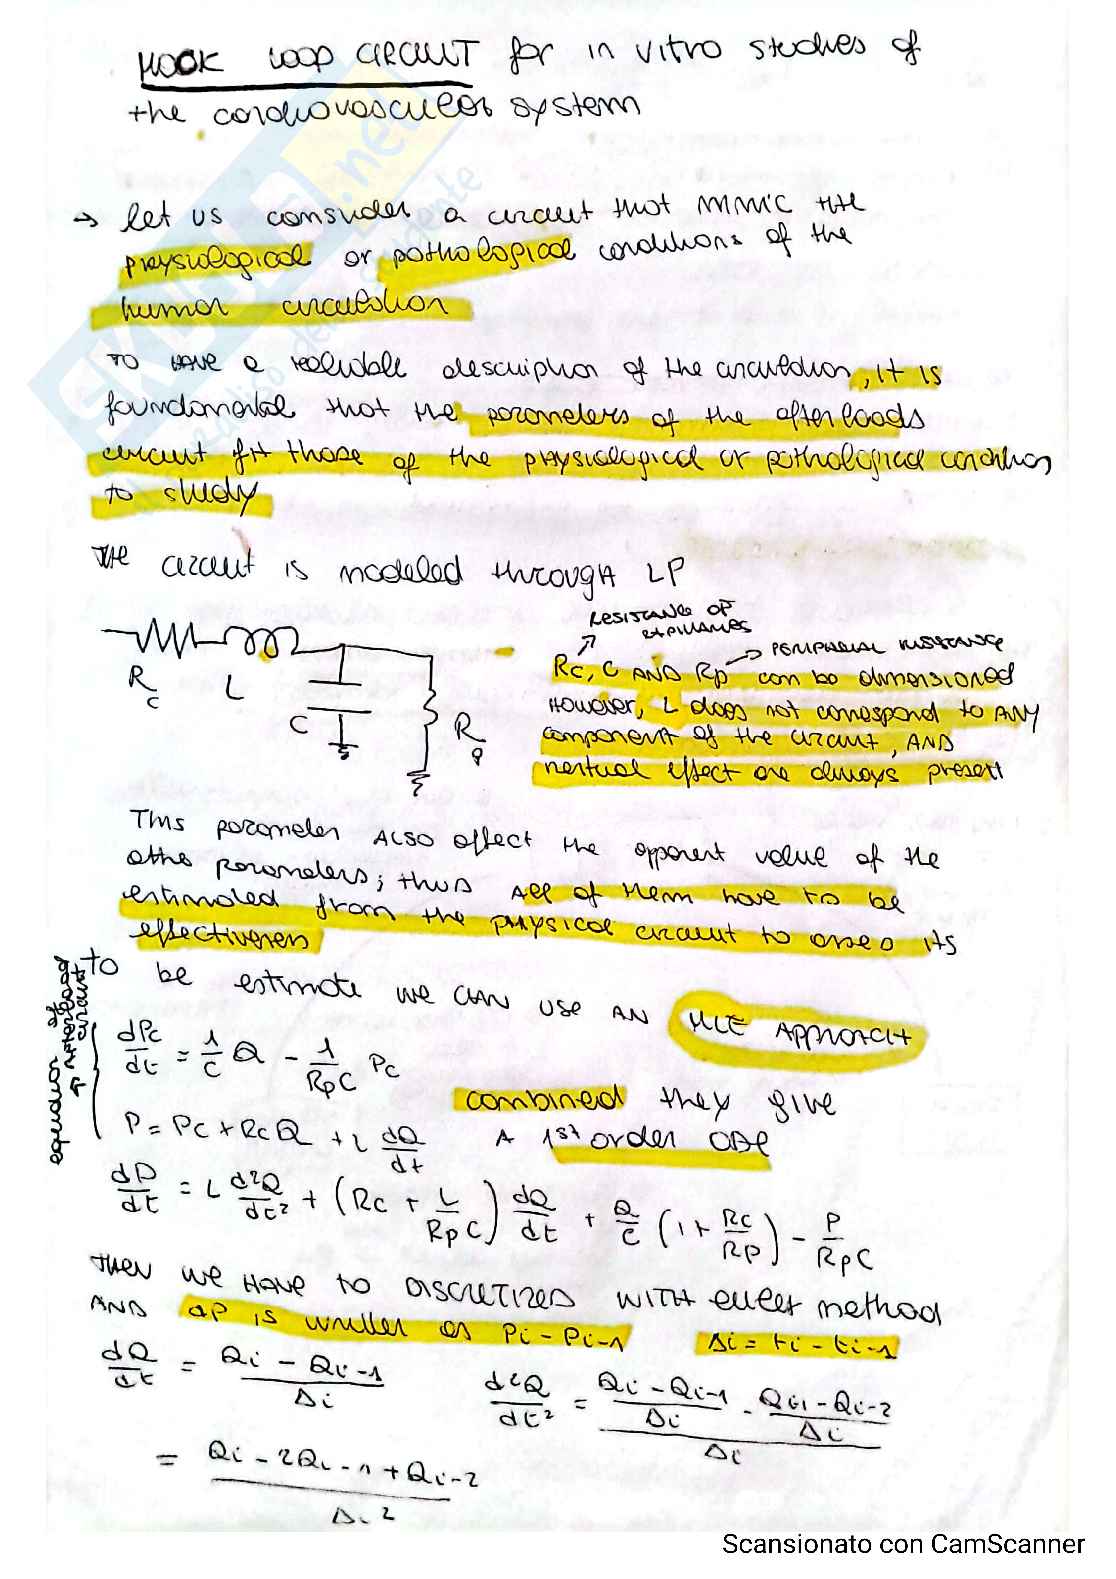 MOCK LOOP CIRCUIT for in vitro studies of
the cardiovascular system
→ let us consider a circuit that MIMIC THE
physiological or pathological conditions of the
human circulation
TO HAVE a reliable description of the circulation, it is
foundamental that the parameters of the afterloads
circuit fit those of the physiological or pathological condition
to study
THE circuit is modeled through LP
RESISTANCE OF
CAPILLARIES
PERIPHERIAL RESISTANCE
Rc, C AND Rp can be dimensioned
HOWEVER, L does not correspond to ANY
component of the circuit, AND
inertial effect are always present
Rc
L
C
Rp
This parameter ALSO affect the apparent value of the
othe parameters; thus All of them have to be
estimated from the physical circuit to asses its
effectiveness
to be estimate we CAN USE AN MLE APPROACH
equation of
afterload
circuit
dPc/dt = 1/C Q - 1/RpC Pc
combined they give
P = Pc + Rc Q + L dQ/dt
A 1st order ODE
dP/dt = L d²Q/dt² + (Rc + L/RpC) dQ/dt + Q/C (1 + Rc/Rp) - P/RpC
THEN WE HAVE TO DISCRETIZED WITH euler method
AND dP is written as Pi - Pi-1 Δi = ti - ti-1
dQ/dt = Qi - Qi-1/Δi d²Q/dt² = Qi - Qi-1/Δi - Qi-1 - Qi-2/Δi/Δi
= Qi - 2Qi-1 + Qi-2/Δi²
Scansionato con CamScanner